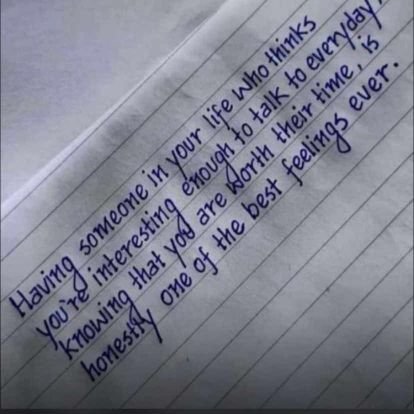 Having someone in your life who thinks
you're interesting enough to talk to everyday,
knowing that you are worth their time, is
honestly one of the best feelings ever.